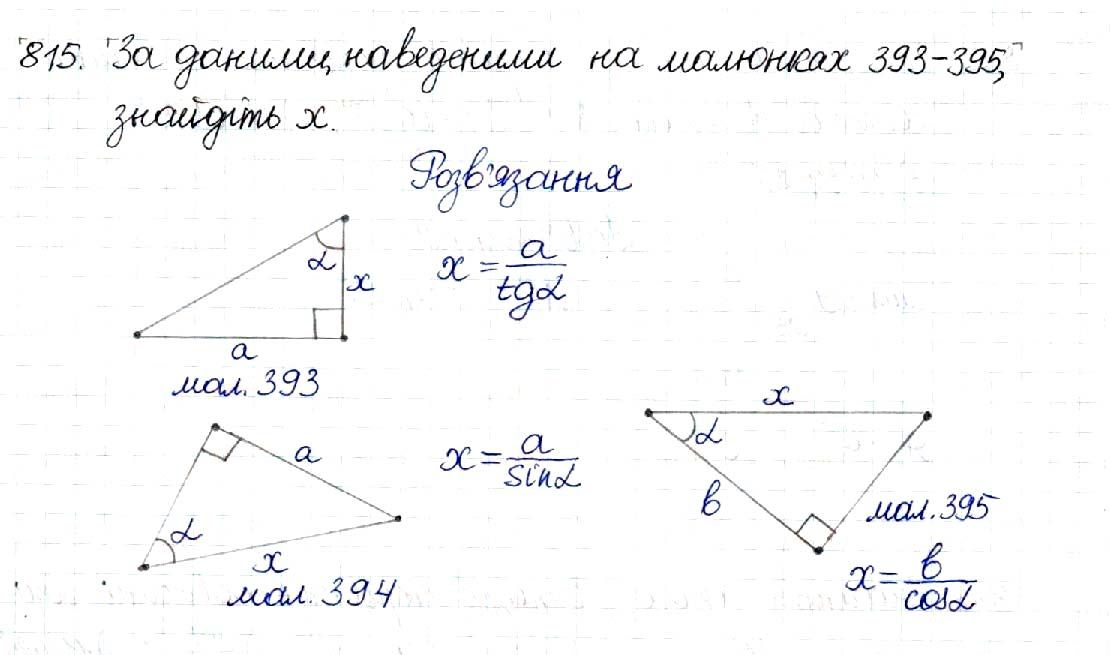 815. За даними, наведеними на малюнках 393-395,
знайдіть х.
Розв'язання
α
х
а
мал. 393
х = а/tgα
а
α
х
мал. 394
х = а/sinα
х
α
в
мал. 395
х = в/cosα